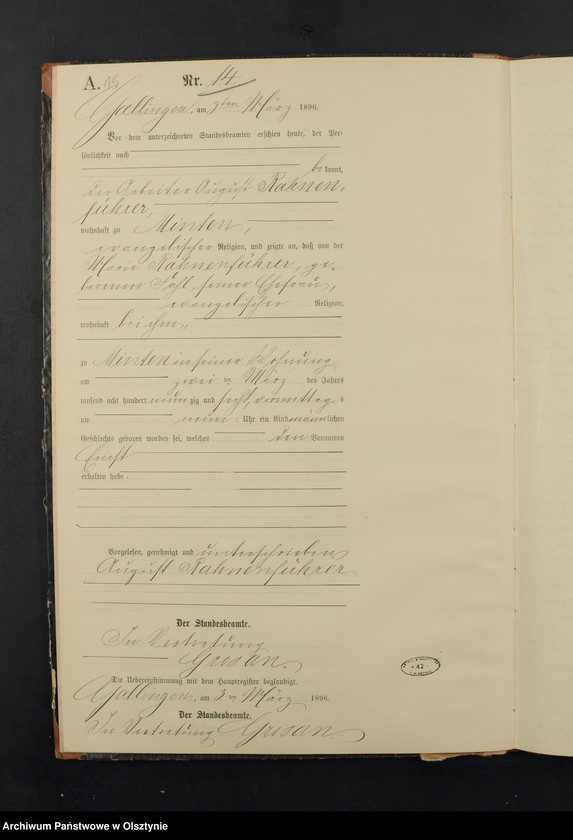 A. 15 Nr. 14.
Gallingen, am 3ten März 1896.
Vor dem unterzeichneten Standesbeamten erschien heute, der Per-
sönlichkeit nach
be kannt,
der Arbeiter August Rahnen-
führer,
wohnhaft zu Minten,
evangelischer Religion, und zeigte an, daß von der
Marie Rahnenführer, ge-
borenen Fahl, seiner Ehefrau,
evangelischer Religion,
wohnhaft bei ihm,
zu Minten in seiner Wohnung
am zwei ten März des Jahres
tausend acht hundert neun zig und sechs, vormittags
um neun Uhr ein Kind männlichen
Geschlechts geboren worden sei, welches den Vornamen
Ernst
erhalten habe.
Vorgelesen, genehmigt und unterschrieben
August Rahnenführer
Der Standesbeamte.
In Vertretung
Gresan.
Die Uebereinstimmung mit dem Hauptregister beglaubigt.
Gallingen, am 3 ten März 1896.
Der Standesbeamte.
In Vertretung Gresan.
42
Archiwum Państwowe w Olsztynie